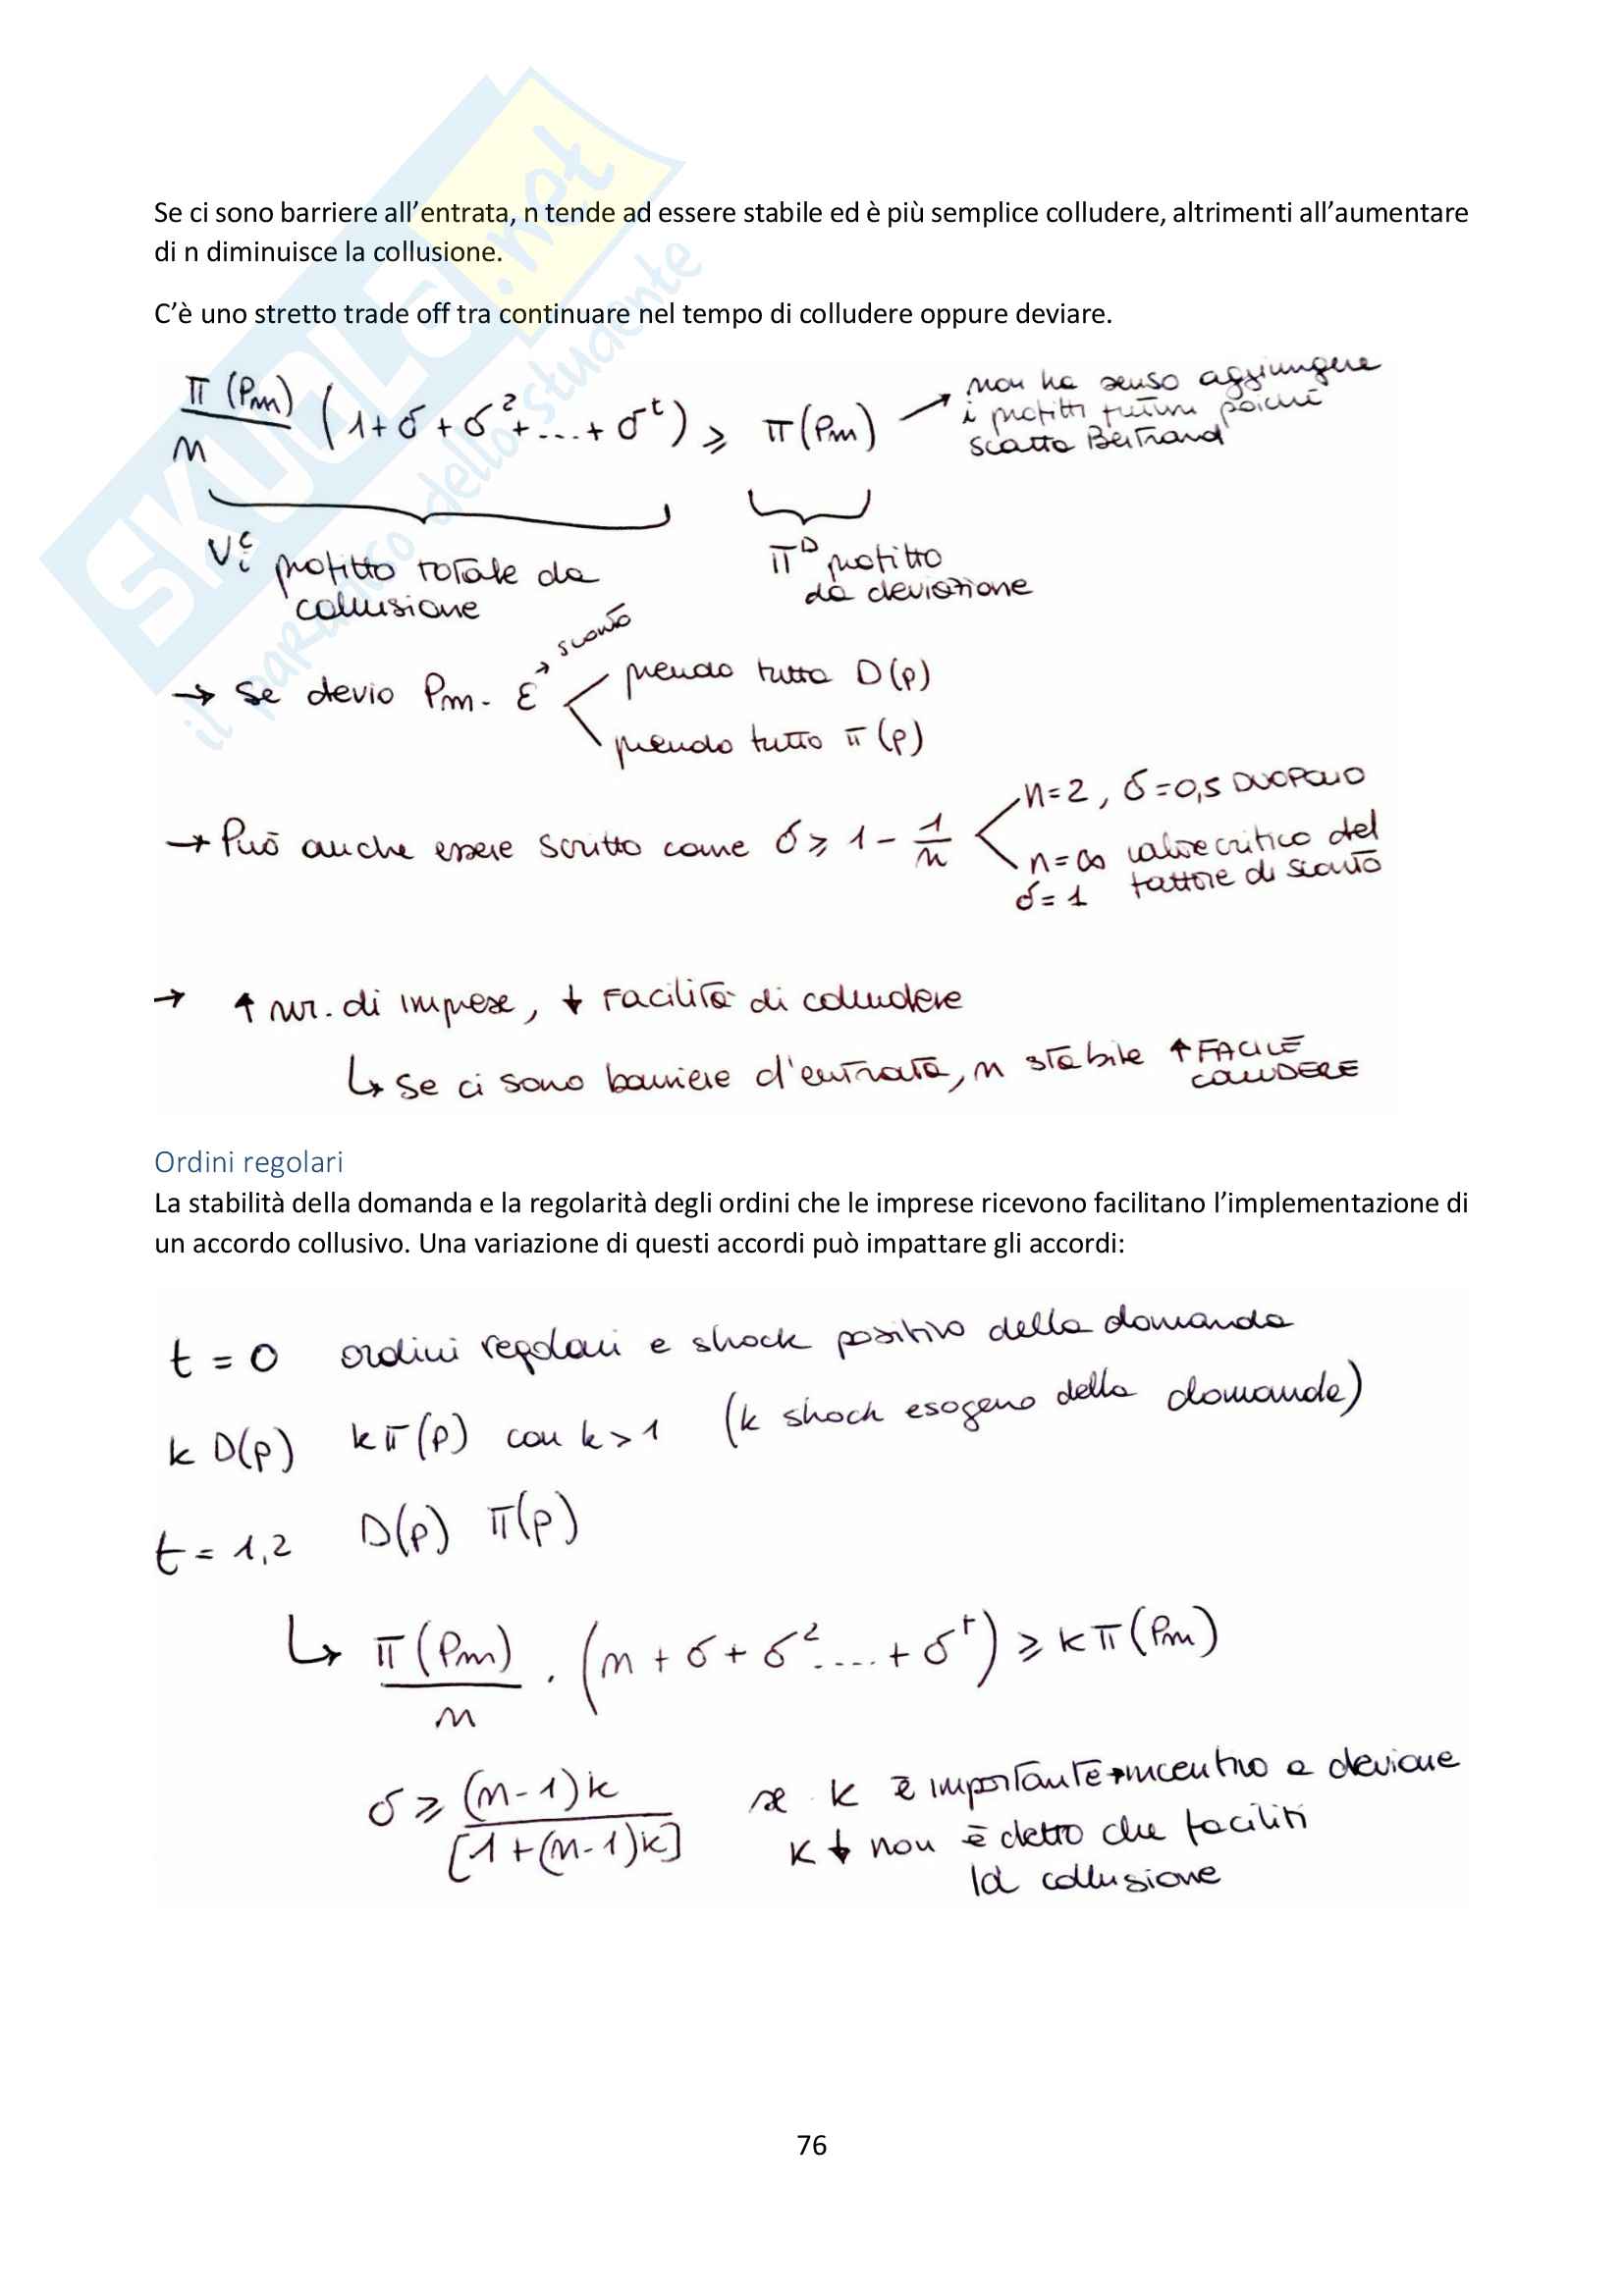 SKUOLA.net
il paradiso dello studente
Se ci sono barriere all’entrata, n tende ad essere stabile ed è più semplice colludere, altrimenti all’aumentare
di n diminuisce la collusione.
C’è uno stretto trade off tra continuare nel tempo di colludere oppure deviare.
π(Pm)/n (1+δ+δ²+...+δᵗ) ⩾ π(Pm) → non ha senso aggiungere
i profitti futuri poiché
scatta Bertrand
Vᵢᶜ profitto totale da
collusione
πᴰ profitto
da deviazione
→ se devio Pm - ε → sconto
prendo tutta D(p)
prendo tutto π(p)
→ Può anche essere scritto come δ ⩾ 1 - 1/n
n=2, δ=0,5 DUOPOLIO
n=∞ valore critico del
δ=1 fattore di sconto
→ ↑ nr. di imprese, ↓ facilità di colludere
↳ se ci sono barriere d'entrata, n stabile ↑ FACILE
COLLUDERE
Ordini regolari
La stabilità della domanda e la regolarità degli ordini che le imprese ricevono facilitano l’implementazione di
un accordo collusivo. Una variazione di questi accordi può impattare gli accordi:
t = 0 ordini regolari e shock positivo della domanda
k D(p) kπ(p) con k > 1 (k shock esogeno della domanda)
t = 1,2 D(p) π(p)
↳ π(Pm)/n · (n + δ + δ² .... + δᵗ) ⩾ kπ(Pm)
δ ⩾ (n-1)k/[1+(n-1)k] se k è importante → incentivo a deviare
k ↓ non è detto che faciliti
la collusione
76